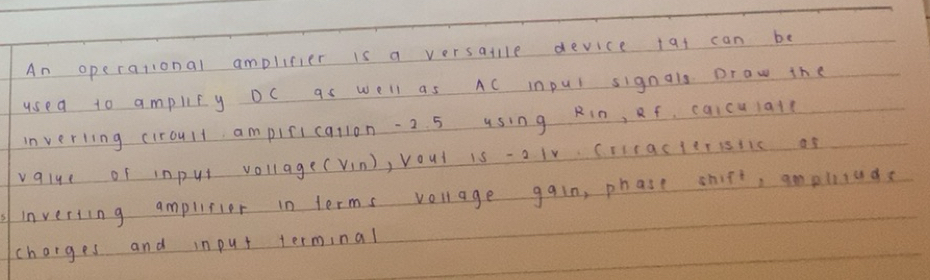 An operational amplifier is a versatile device tat can be
used to amplify DC as well as AC input signals Draw the
inverting circuit ampification -2.5 using Rin, Rf. calculate
value of input voltage (Vin), Vout is -21v. Criracteristic of
inverting amplifier in terms voltage gain, phase shift, amplitude
charges and input terminal